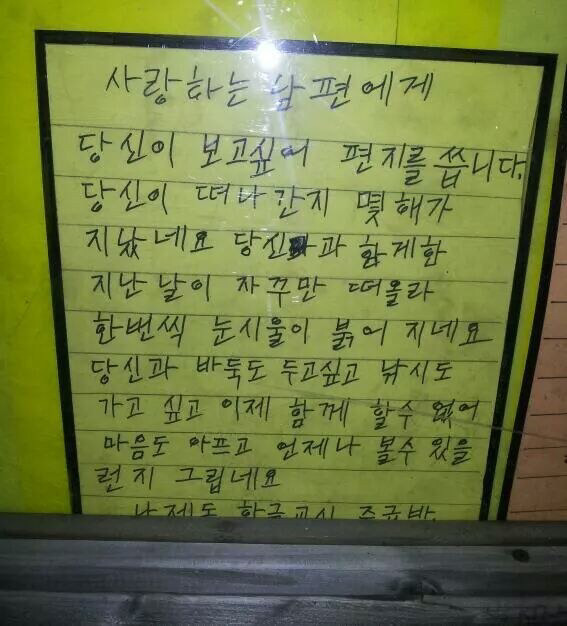 사랑하는 남편에게
당신이 보고싶어 편지를 씁니다.
당신이 떠나간지 몇해가
지났네요 당신과 함게한
지난날이 자꾸만 떠올라
한번씩 눈시울이 붉어 지네요
당신과 바둑도 두고싶고 낚시도
가고 싶고 이제 함께 할수 없어
마음도 아프고 언제나 볼수 있을
런지 그립네요